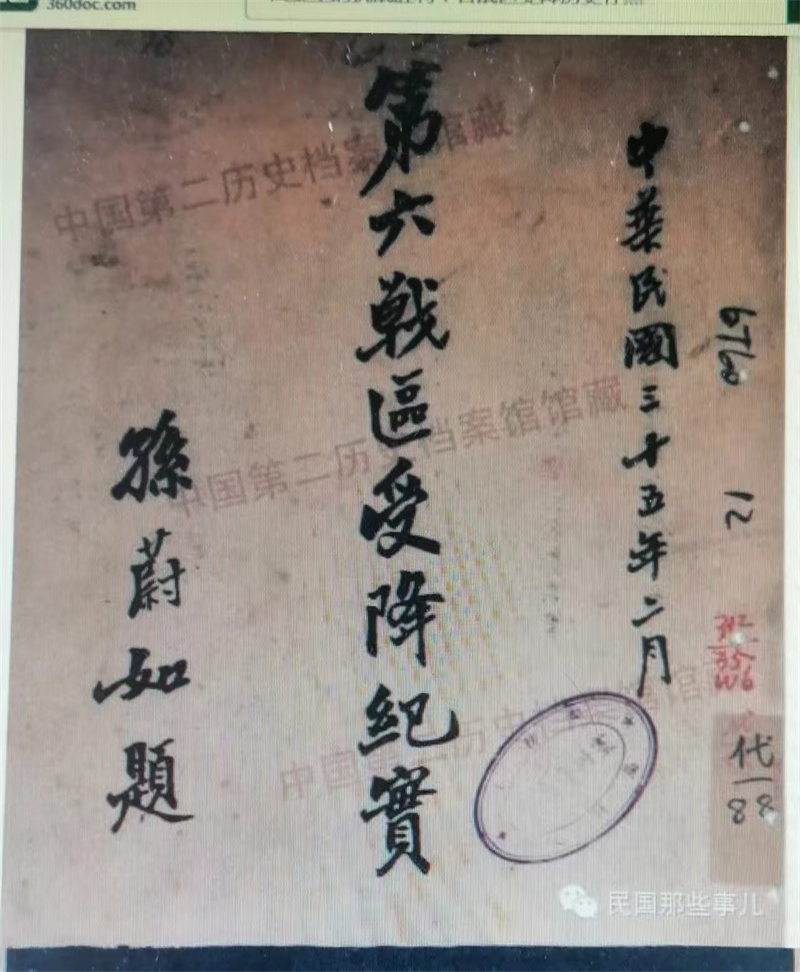 360doc.com
中華民國三十五年二月
第六戰區受降紀實
孫蔚如題
中国第二历史档案馆馆藏
中国第二历史档案馆馆藏
中国第二历史档案馆
12
代
88
民国那些事儿